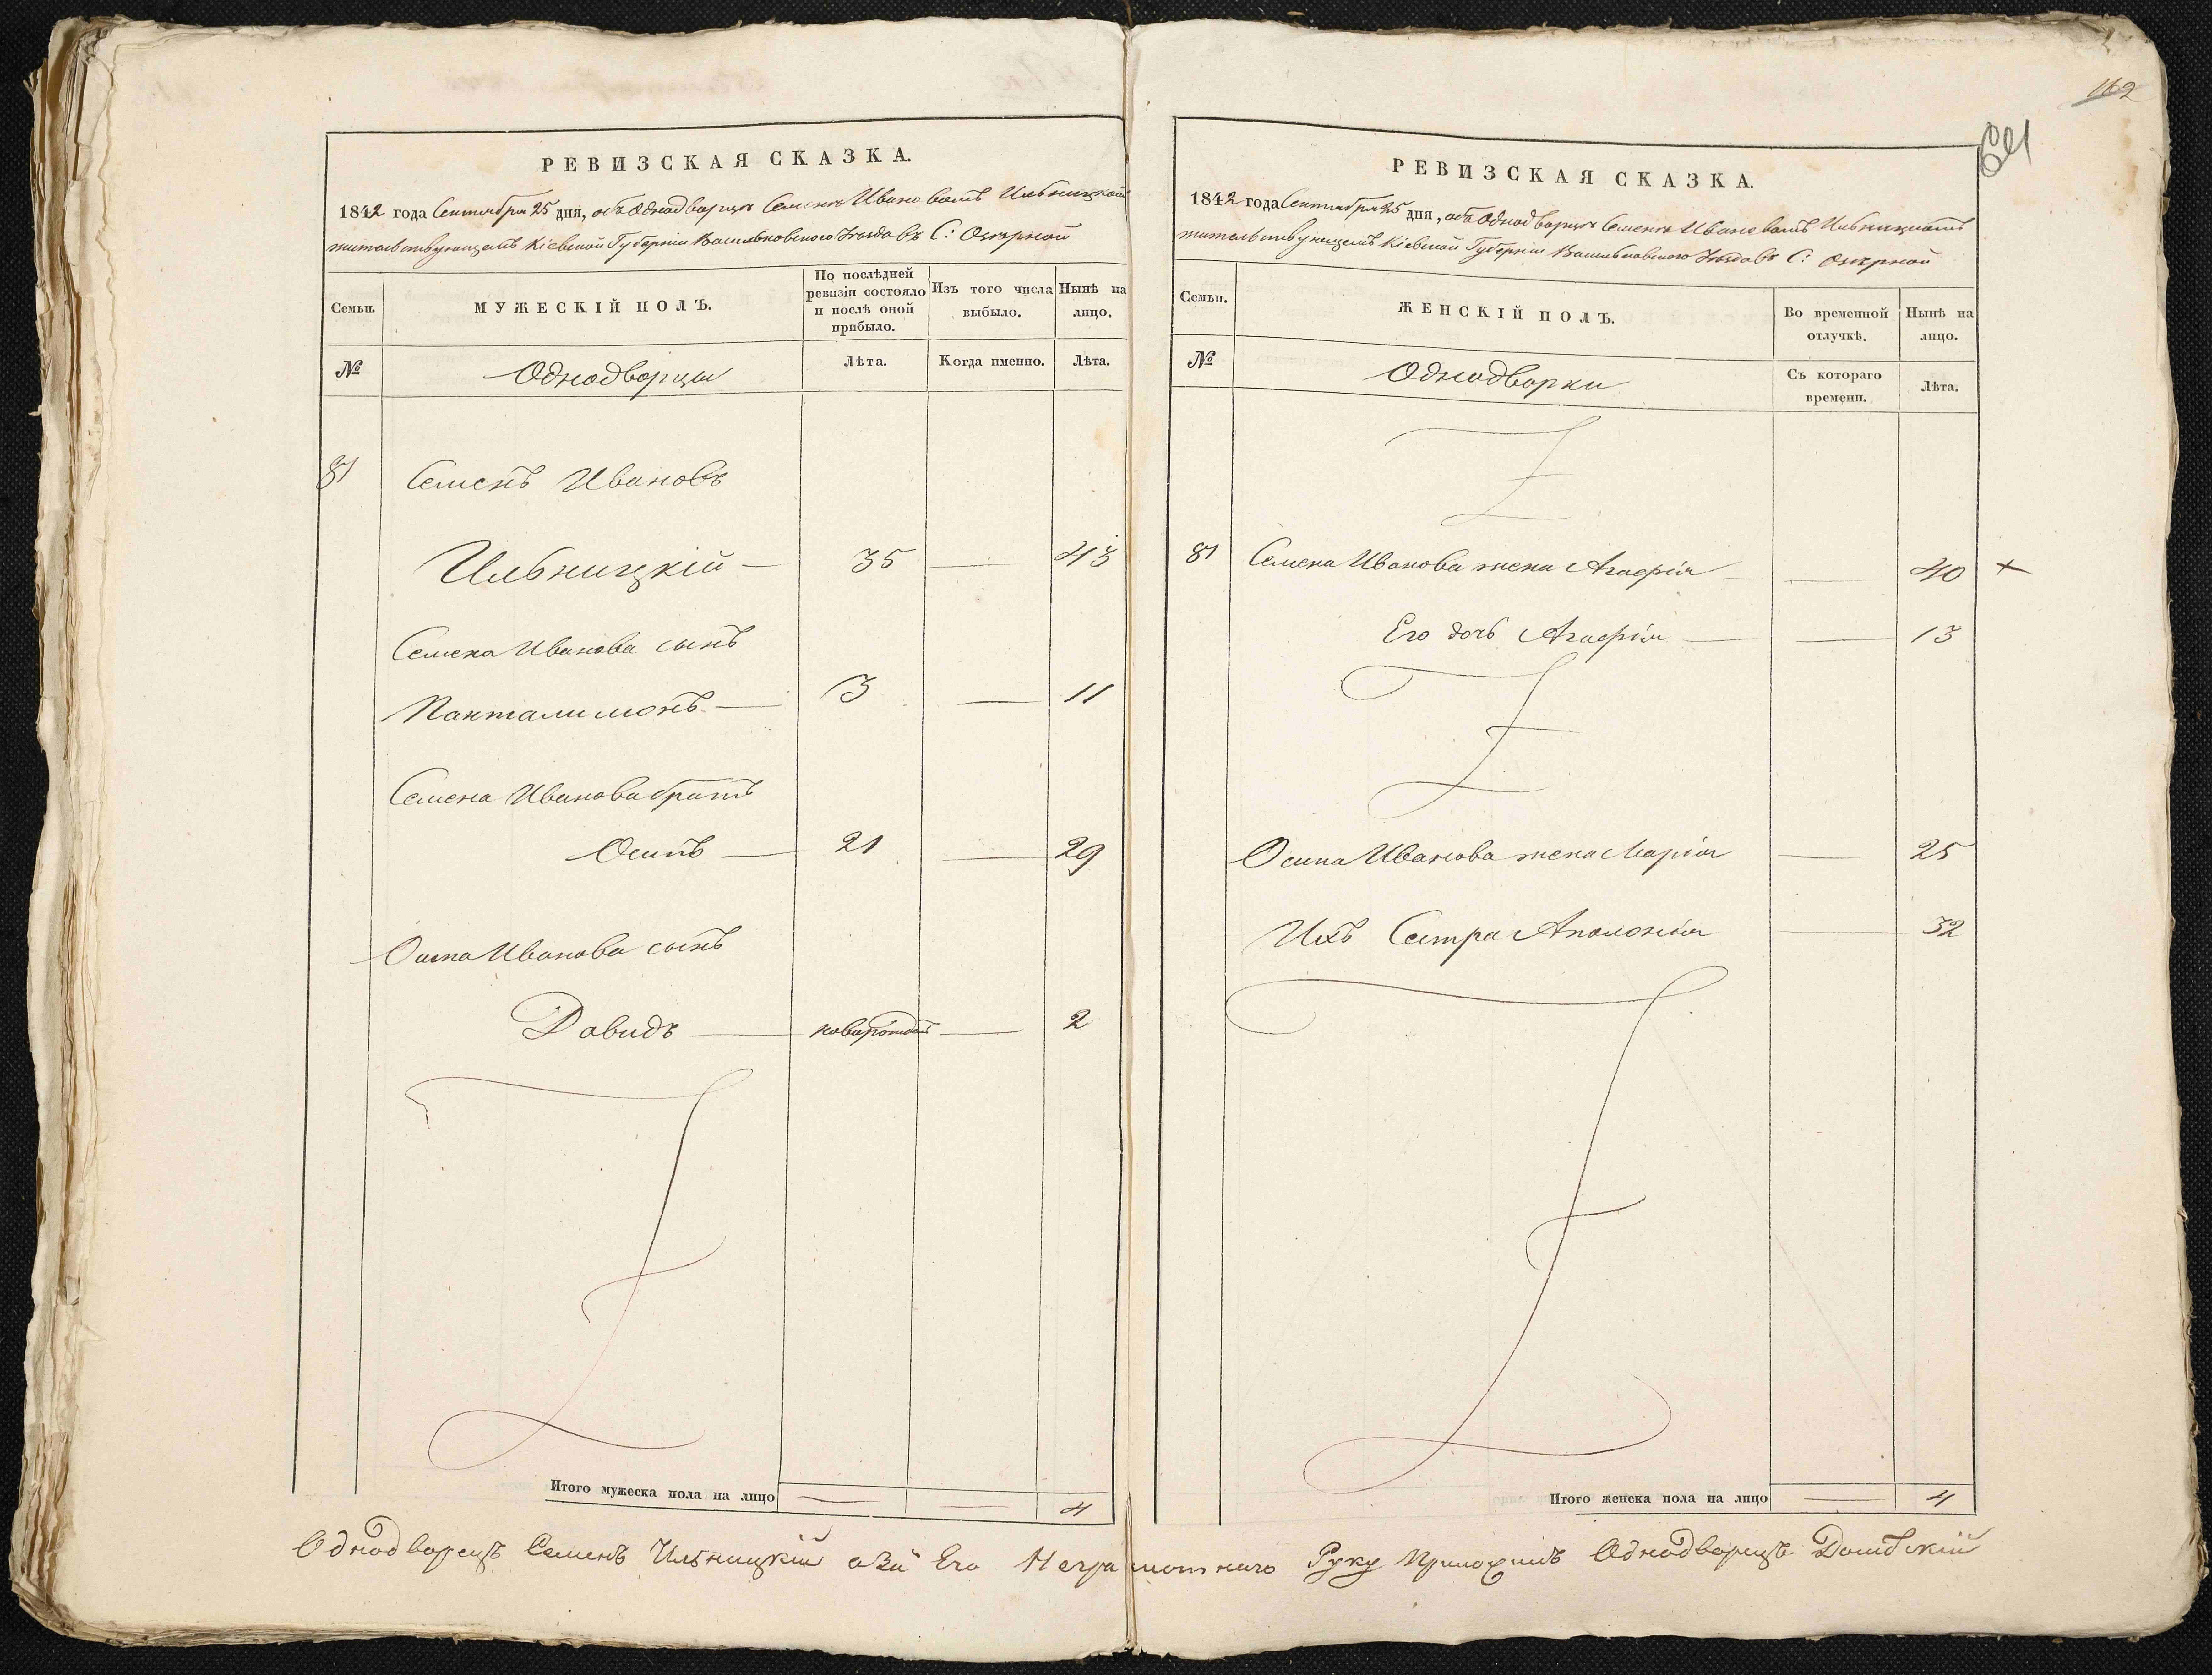 162
641
РЕВИЗСКАЯ СКАЗКА.
1842 года Сентября 25 дня, объ Однодворцѣ Семенѣ Ивановомъ Ильницкомъ
жительствующемъ Кіевской Губерніи Васильковскаго Уѣзда въ С: Озерной
Семьи.
МУЖЕСКІЙ ПОЛЪ.
По послѣдней
ревизіи состояло
и послѣ оной
прибыло.
Изъ того числа
выбыло.
Нынѣ на
лицо.
№
Однодворцы
Лѣта.
Когда именно.
Лѣта.
81 Семенъ Ивановъ
Ильницкій — 35 — 43
Семена Иванова сынъ
Панталимонъ — 3 — 11
Семена Иванова братъ
Осипъ — 21 — 29
Осипа Иванова сынъ
Давидъ — новорожден — 2
Итого мужеска пола на лицо — — 4
РЕВИЗСКАЯ СКАЗКА.
1842 года Сентября 25 дня, объ Однодворцѣ Семенѣ Ивановомъ Ильницкомъ
жительствующемъ Кіевской Губерніи Васильковскаго Уѣзда въ С: Озерной
Семьи.
ЖЕНСКІЙ ПОЛЪ.
Во временной
отлучкѣ.
Нынѣ на
лицо.
№
Однодворки
Съ котораго
времени.
Лѣта.
81 Семена Иванова жена Агафія — 40 +
Его дочь Агафія — — 13
Осипа Иванова жена Марія — 25
Ихъ Сестра Аполонія — 32
Итого женска пола на лицо — 4
Однодворецъ Семенъ Ильницкій а За Его Неграмотнаго Руку Приложилъ Однодворецъ